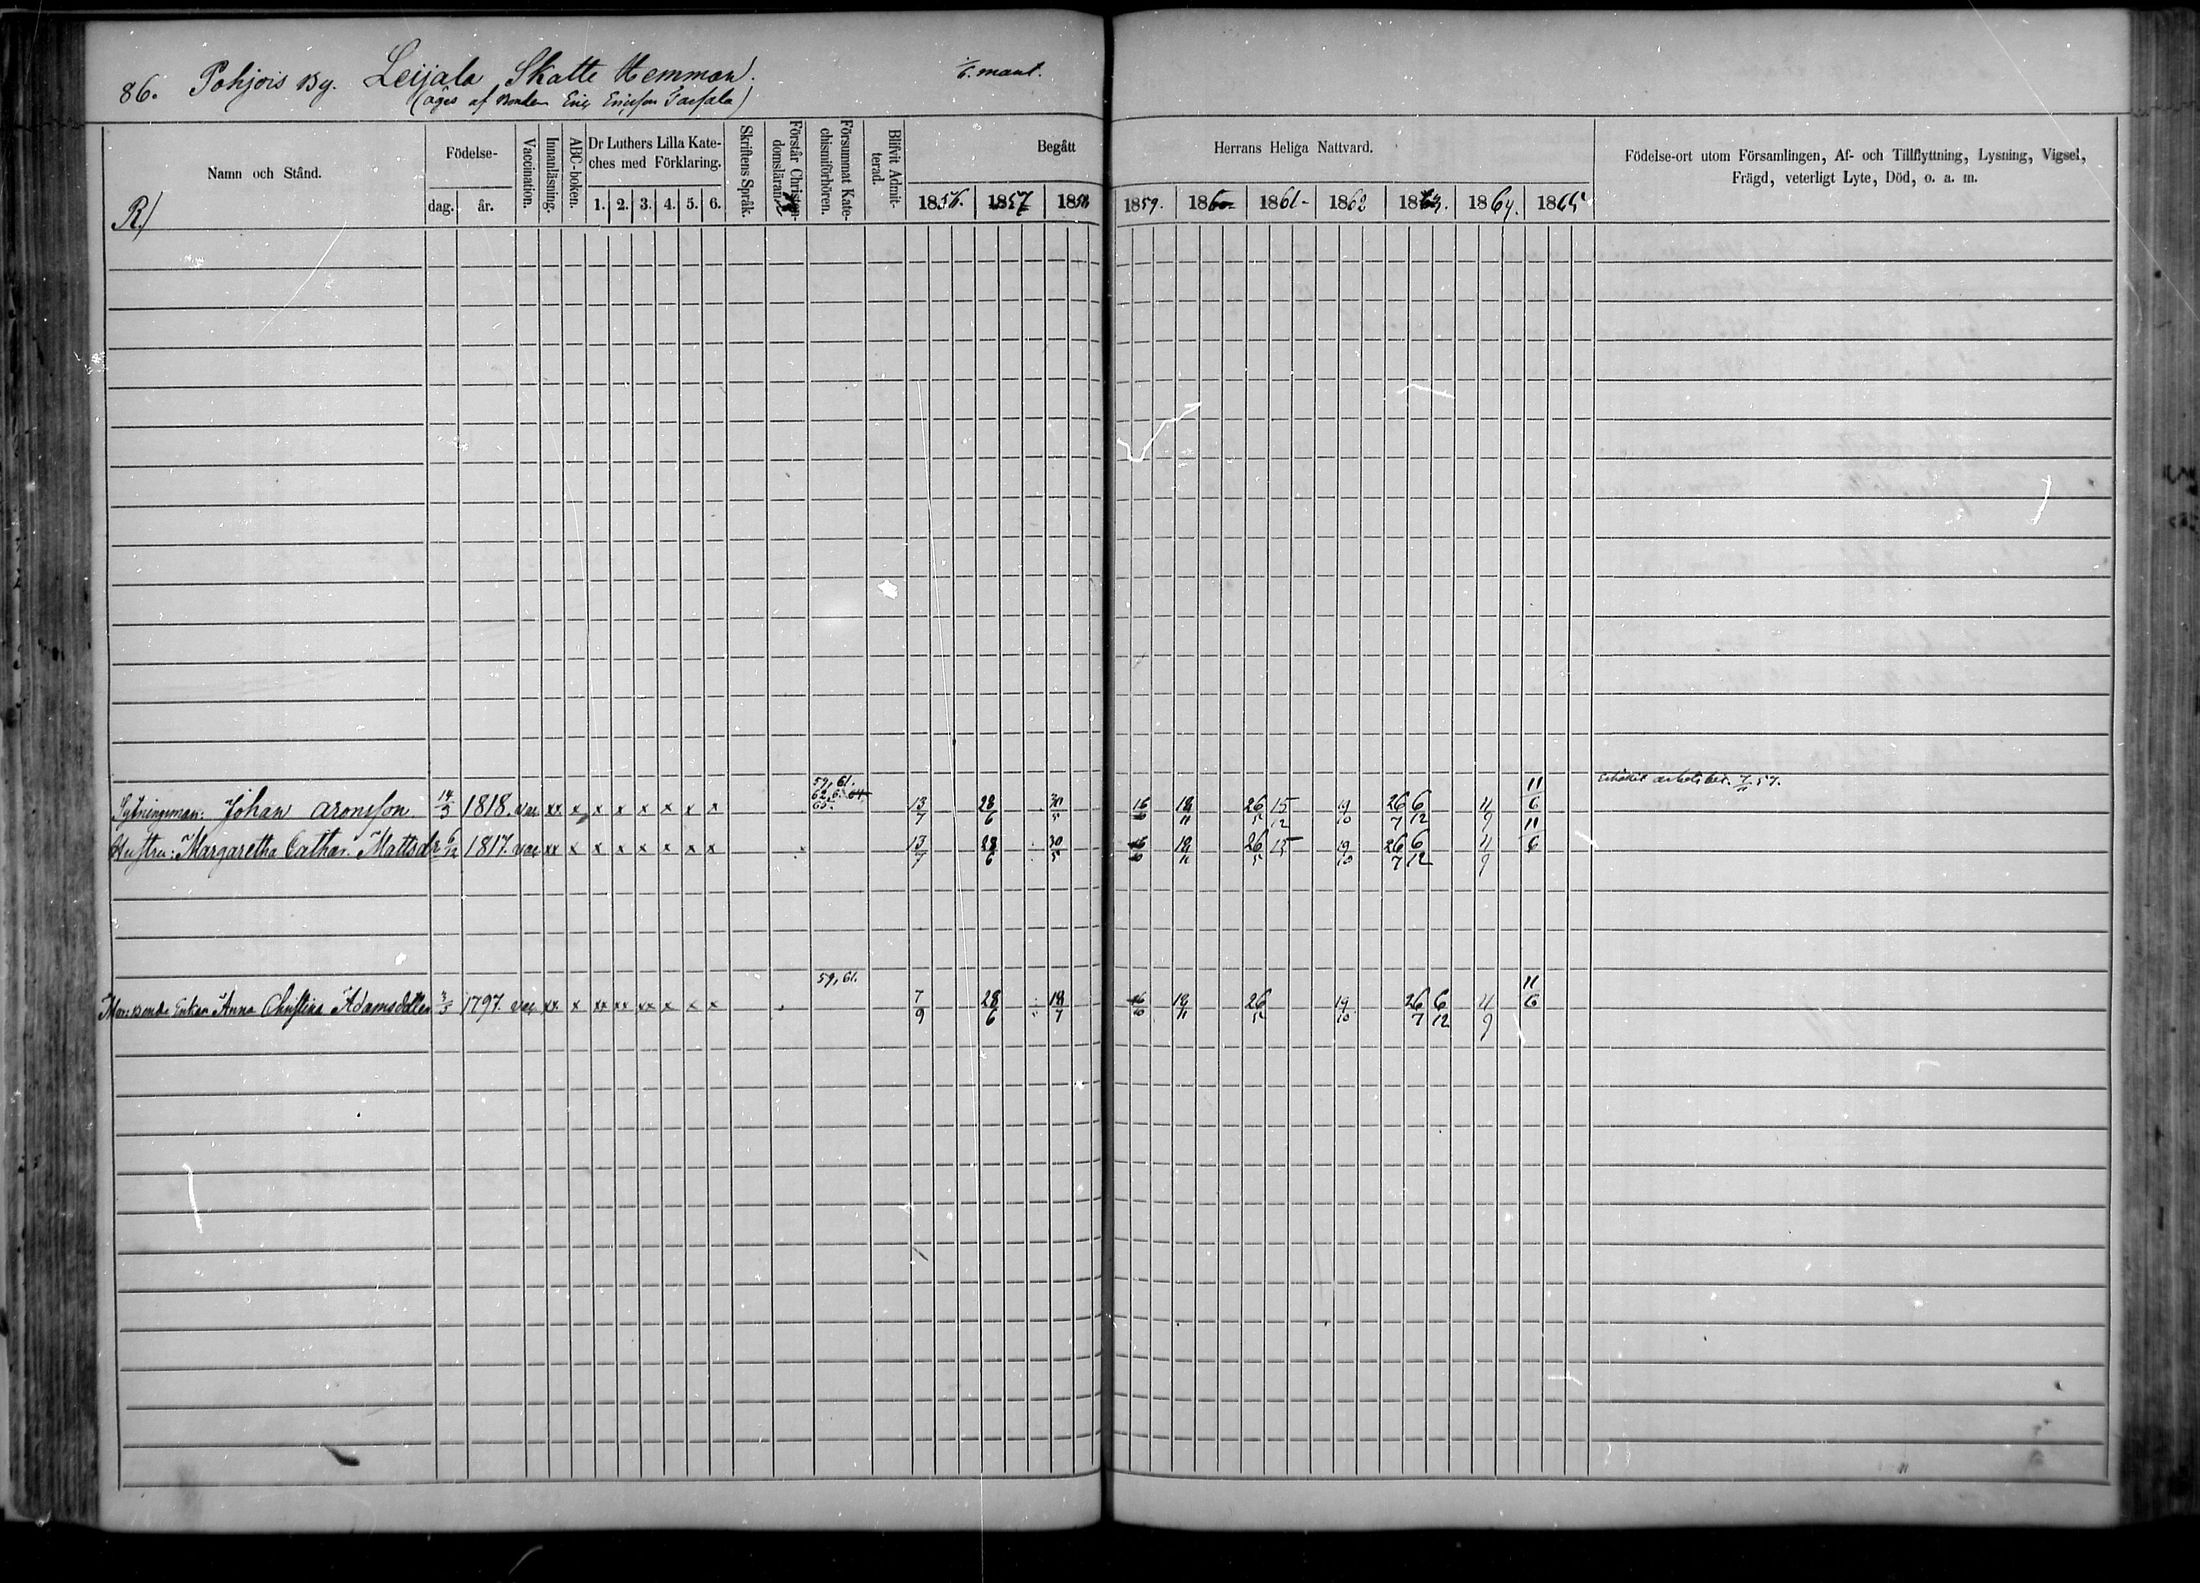 86. Pohjois By. Leijala Skatte Hemman. 1/6 mant.
(äges af Bonden Eric Ericsson Jaspala)
Namn och Stånd.
R/
Födelse-
dag. år.
Vaccination.
Innanläsning.
ABC-boken.
Dr Luthers Lilla Kate-
ches med Förklaring.
1. 2. 3. 4. 5. 6.
Skriftens Språk.
Förstår Christen-
domsläran.
Försummat Kate-
chismiförhören.
Blifvit Admit-
terad.
Begått Herrans Heliga Nattvard.
1856. 1857 1858 1859. 1860 1861 1862 1863. 1864. 1865
Födelse-ort utom Församlingen, Af- och Tillflyttning, Lysning, Vigsel,
Frägd, veterligt Lyte, Död, o. a. m.
59, 61.
65.
Sytningsman: Johan Aronsson 14/3 1818. vac xx x x x x x x x 13/7 28/6 30/5 16/10 18/11 26/5 15/12 19/10 26/7 6/12 4/9 11/6
Hustru: Margaretha Cathar. Mattsdr 6/12 1817. vac xx x x x x x x x 13/7 28/6 30/5 16/10 18/11 26/5 15 19/10 26/7 6/12 4/9 11/6
59, 61.
Enkan Anna Christina Adamsdotter 3/3 1797. vac xx x xx xx xx x x x 7/9 28/6 18/7 16/10 18/11 26/5 19/10 26/7 6/12 4/9 11/6